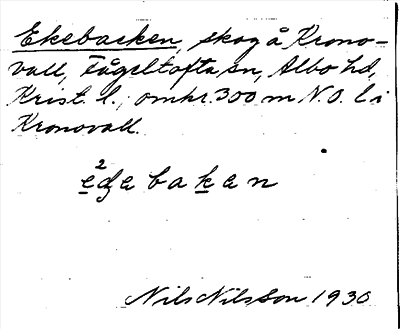 Ekebacken, skog å Krono-
vall, Fågeltofta sn, Albo hd,
Krist. l.; omkr. 300 m N.O. l i
Kronovall.
2
baken
Nils Nilsson 1930